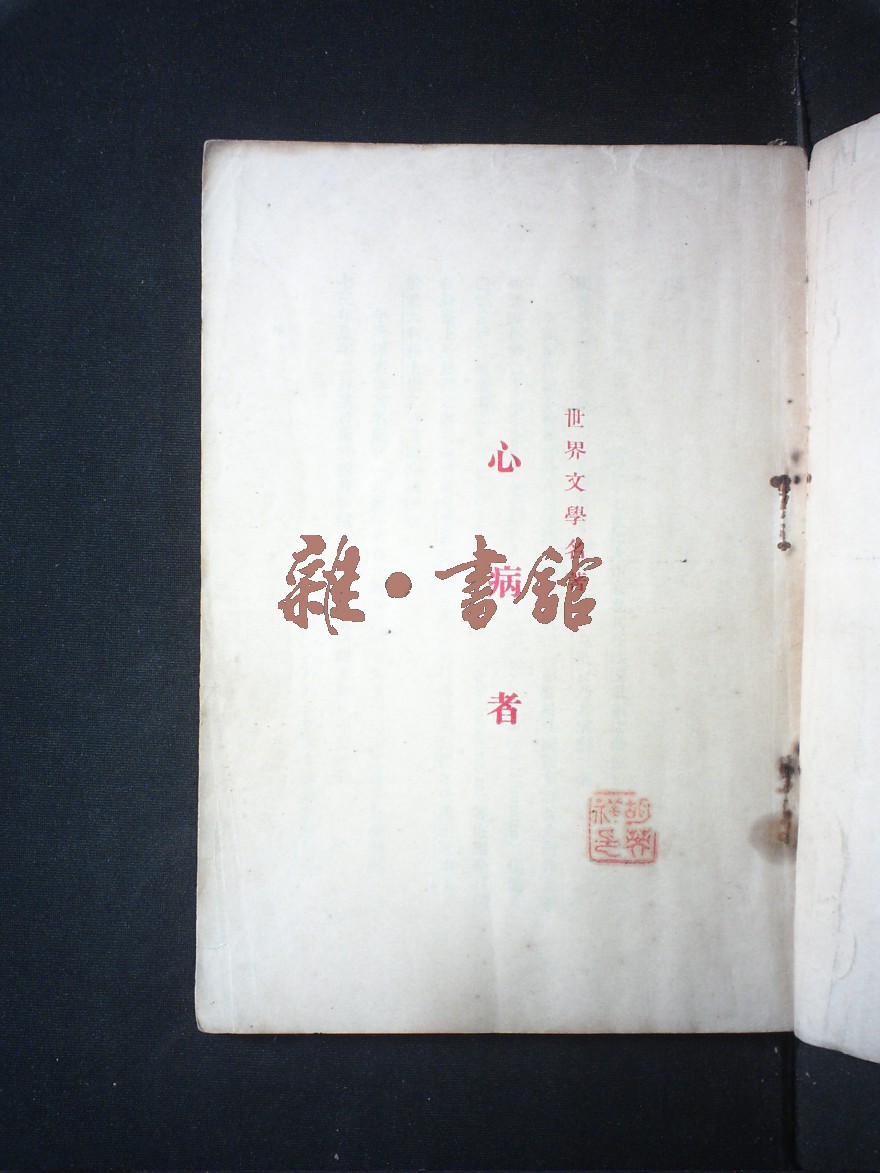 世界文學名著
心病者
雜·書館